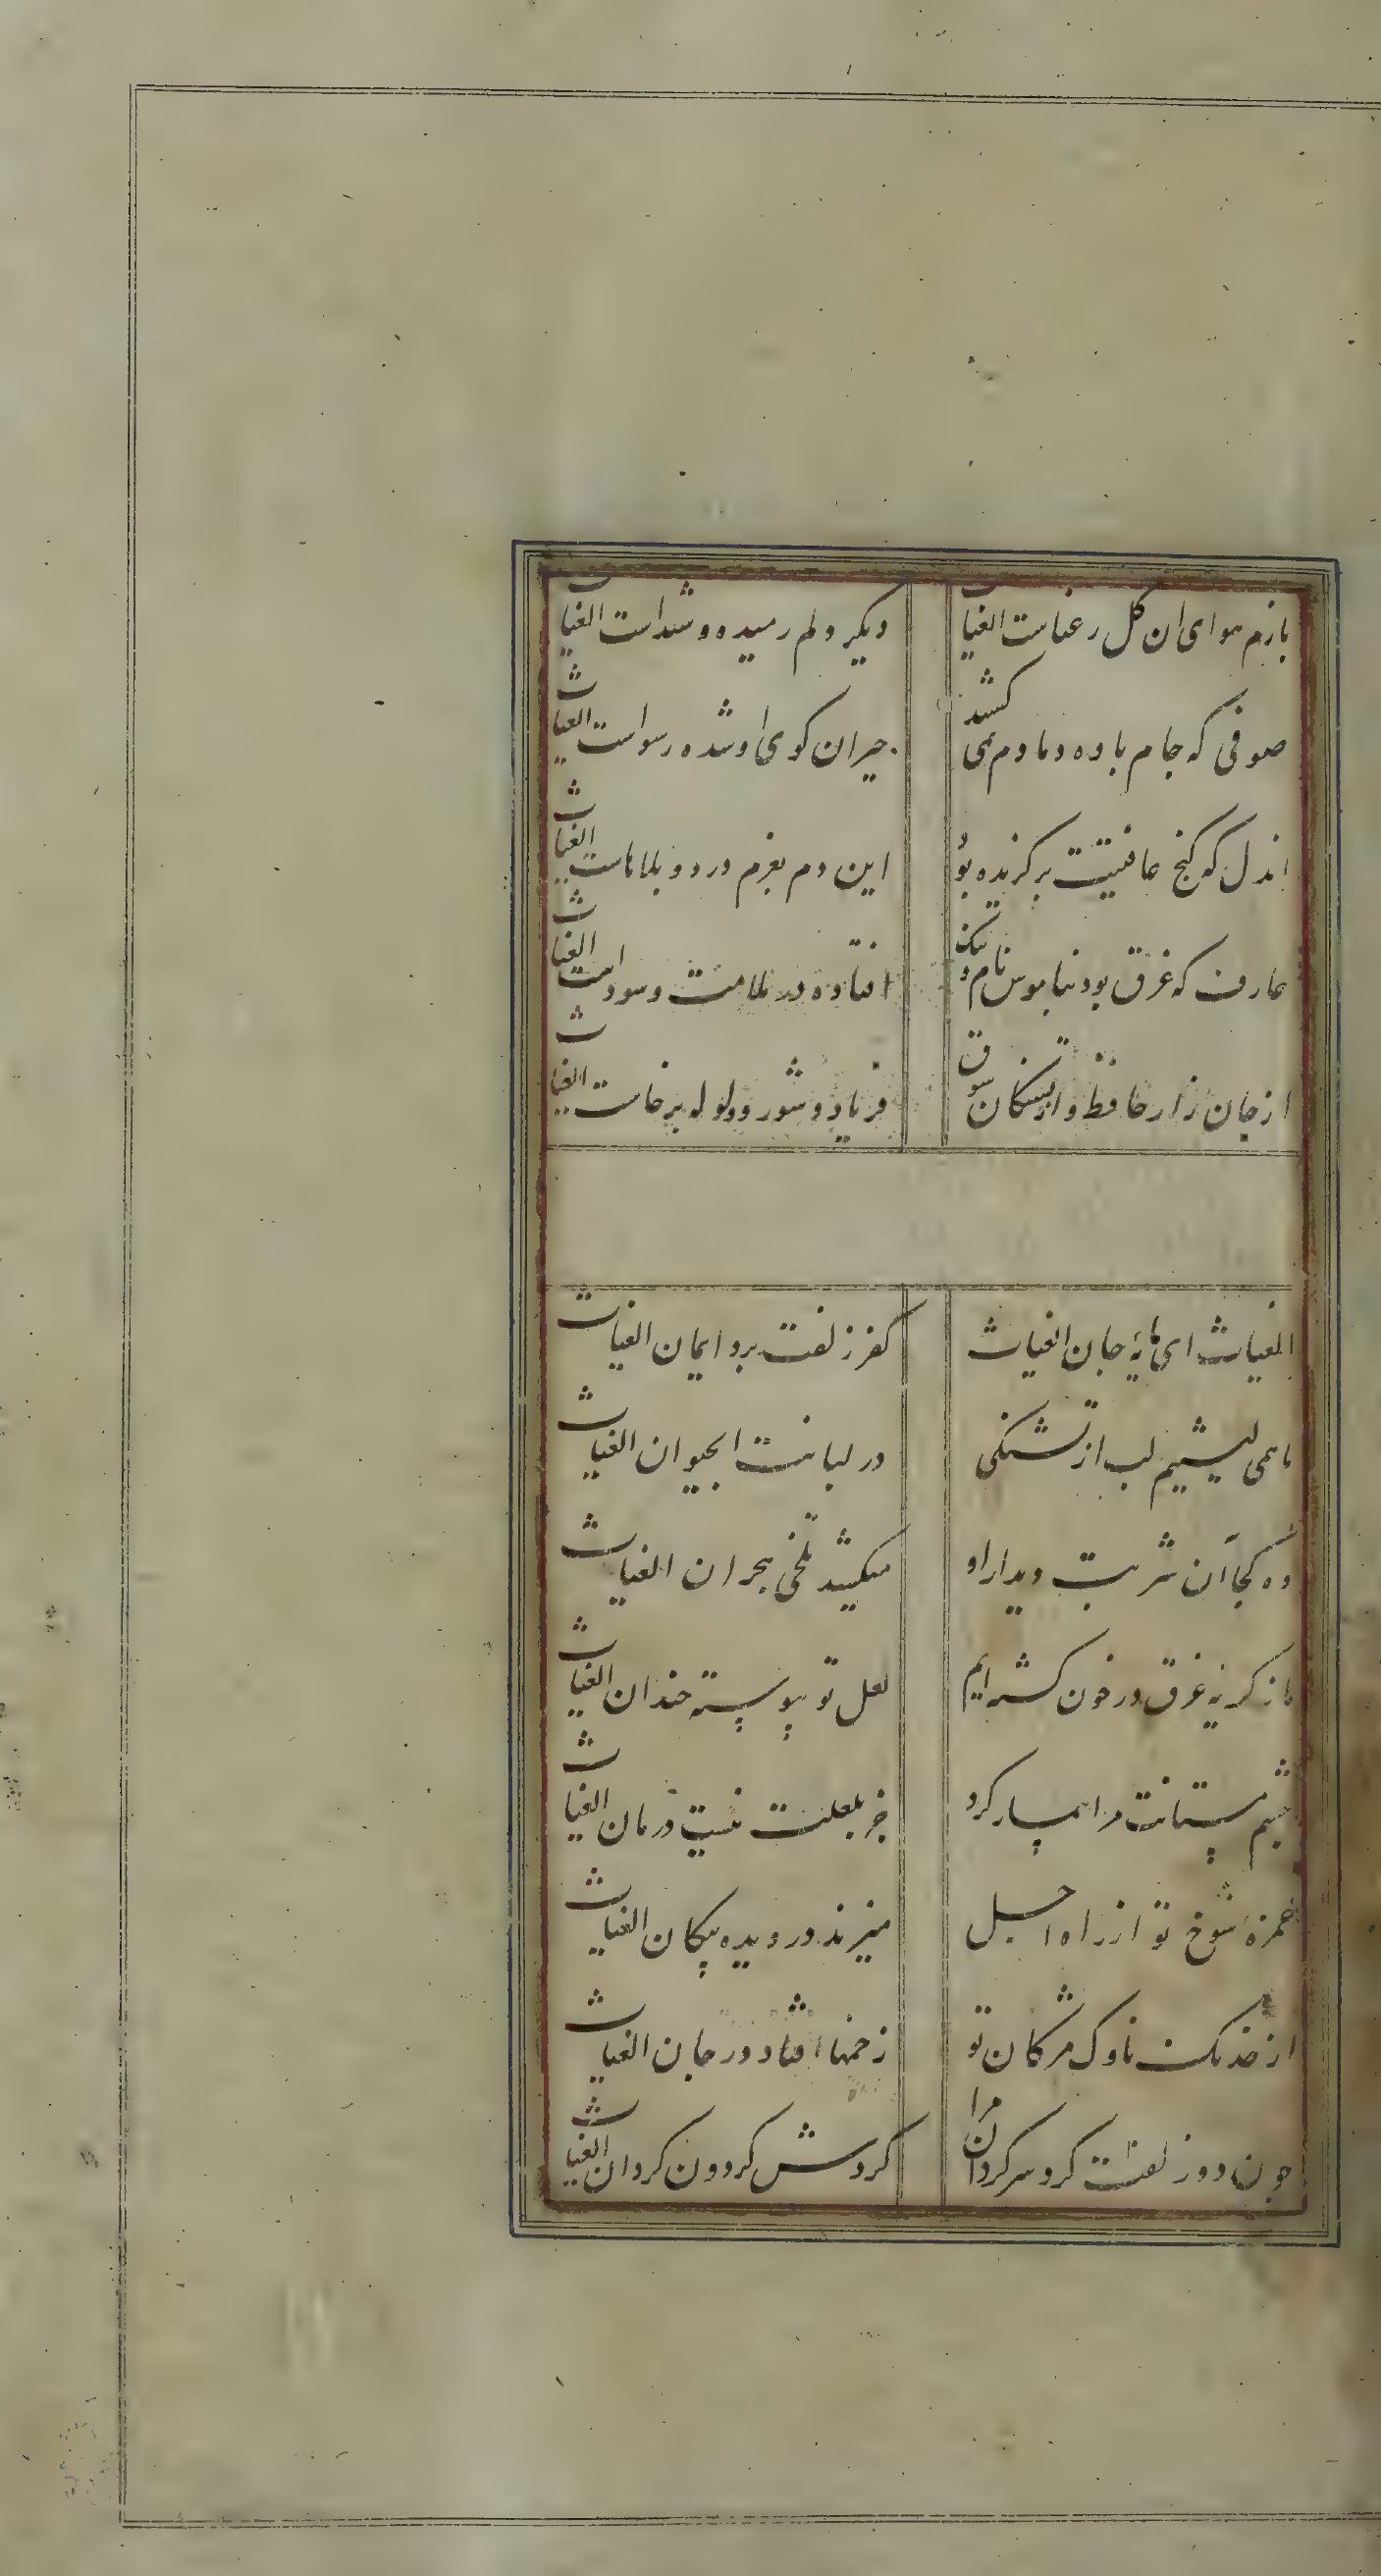 بازم هوای ان کل رعناست الغیاث
دیکر دلم رمیده و شیداست الغیاث
صوفی که جام باده دمادم همی کشد
حیران کوی او شده رسواست الغیاث
اندل که کنج عافیتت برکزیده بود
این دم بغزم درد و بلاهاست الغیاث
عارف که غرق بود بناموس نام و ننک
افتاده در ملامت و سوداست الغیاث
ازجان زار حافظ و از تشنکان شوق
فریاد و شور و ولوله برخاست الغیاث
الغیاث ای مایهٔ جان الغیاث
کفر زلفت برد ایمان الغیاث
ما همی لیسیم لب از تشنکی
در لبانت ابحیوان الغیاث
وه کجا آن شربت دیدار او
میکشد تلخی هجران الغیاث
ماز کریه غرق در خون کشته ایم
لعل تو پیوسته خندان الغیاث
چشم مستانت مرا بیمار کرد
جز بلعلت نیست درمان الغیاث
غمزهٔ شوخ تو از راه اجل
میزند در دیده پیکان الغیاث
از خدنکت ناوک مژکان تو
زخمها افتاد در جان الغیاث
جون دو زلفت کرد سرکردان مرا
کردش کردون کردان الغیاث